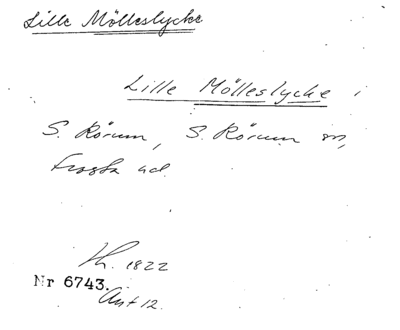 Lille Mölleslycke
Lille Mölleslycke
S. Rörum, S. Rörum sn,
Frosta hd.
Kh. 1822
Nr 6743.
Avt 12.